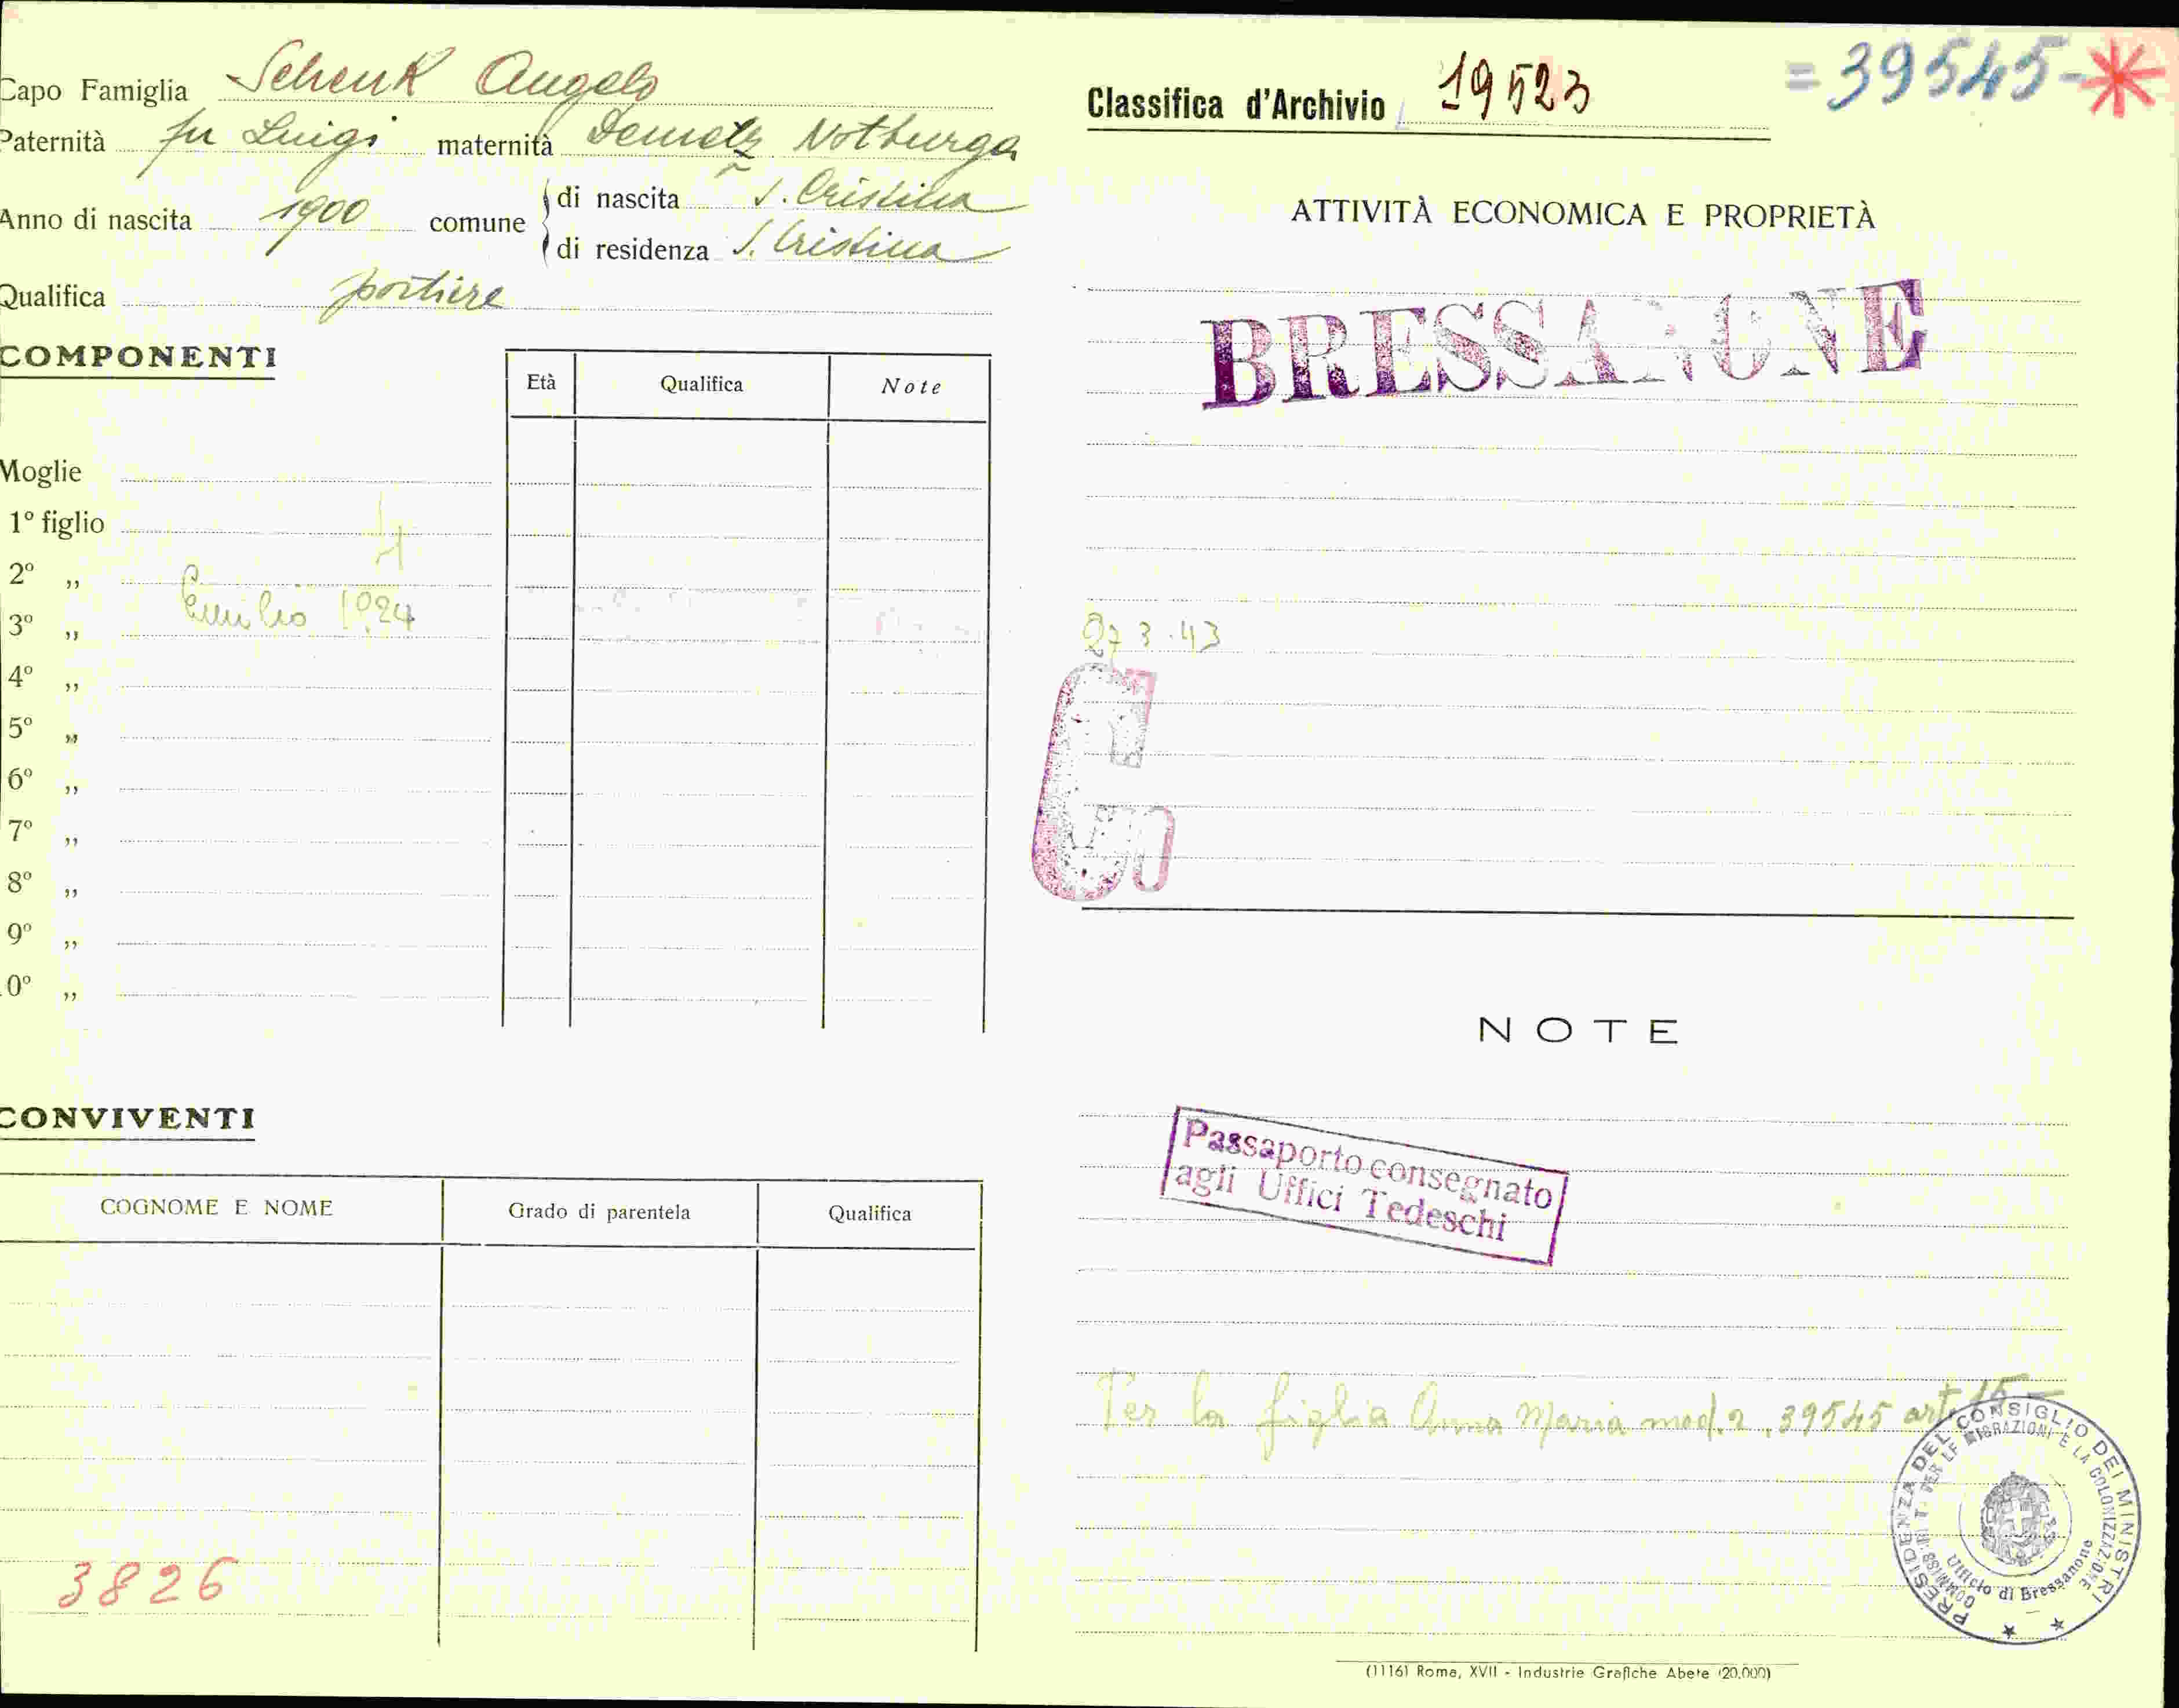 Capo Famiglia Schenk Angelo
Paternità fu Luigi maternità Demetz Notburga
Anno di nascita 1900 comune
di nascita S. Cristina
di residenza S. Cristina
Qualifica portiere
COMPONENTI
Età Qualifica Note
Moglie
1º figlio
2º "
Emilio 1924
3º "
4º "
5º "
6º "
7º "
8º "
9º "
0º "
CONVIVENTI
COGNOME E NOME Grado di parentela Qualifica
3826
Classifica d'Archivio 19523
=39545-*
ATTIVITÀ ECONOMICA E PROPRIETÀ
BRESSANONE
27 3.43
NOTE
Passaporto consegnato
agli Uffici Tedeschi
Per la figlia Anna Maria mod. 2. 39545 art 15 -
PRESIDENZA DEL CONSIGLIO DEI MINISTRI
PER LE MIGRAZIONI E LA COLONIZZAZIONE
Ufficio di Bressanone
(1116) Roma, XVII - Industrie Grafiche Abete (20.000)